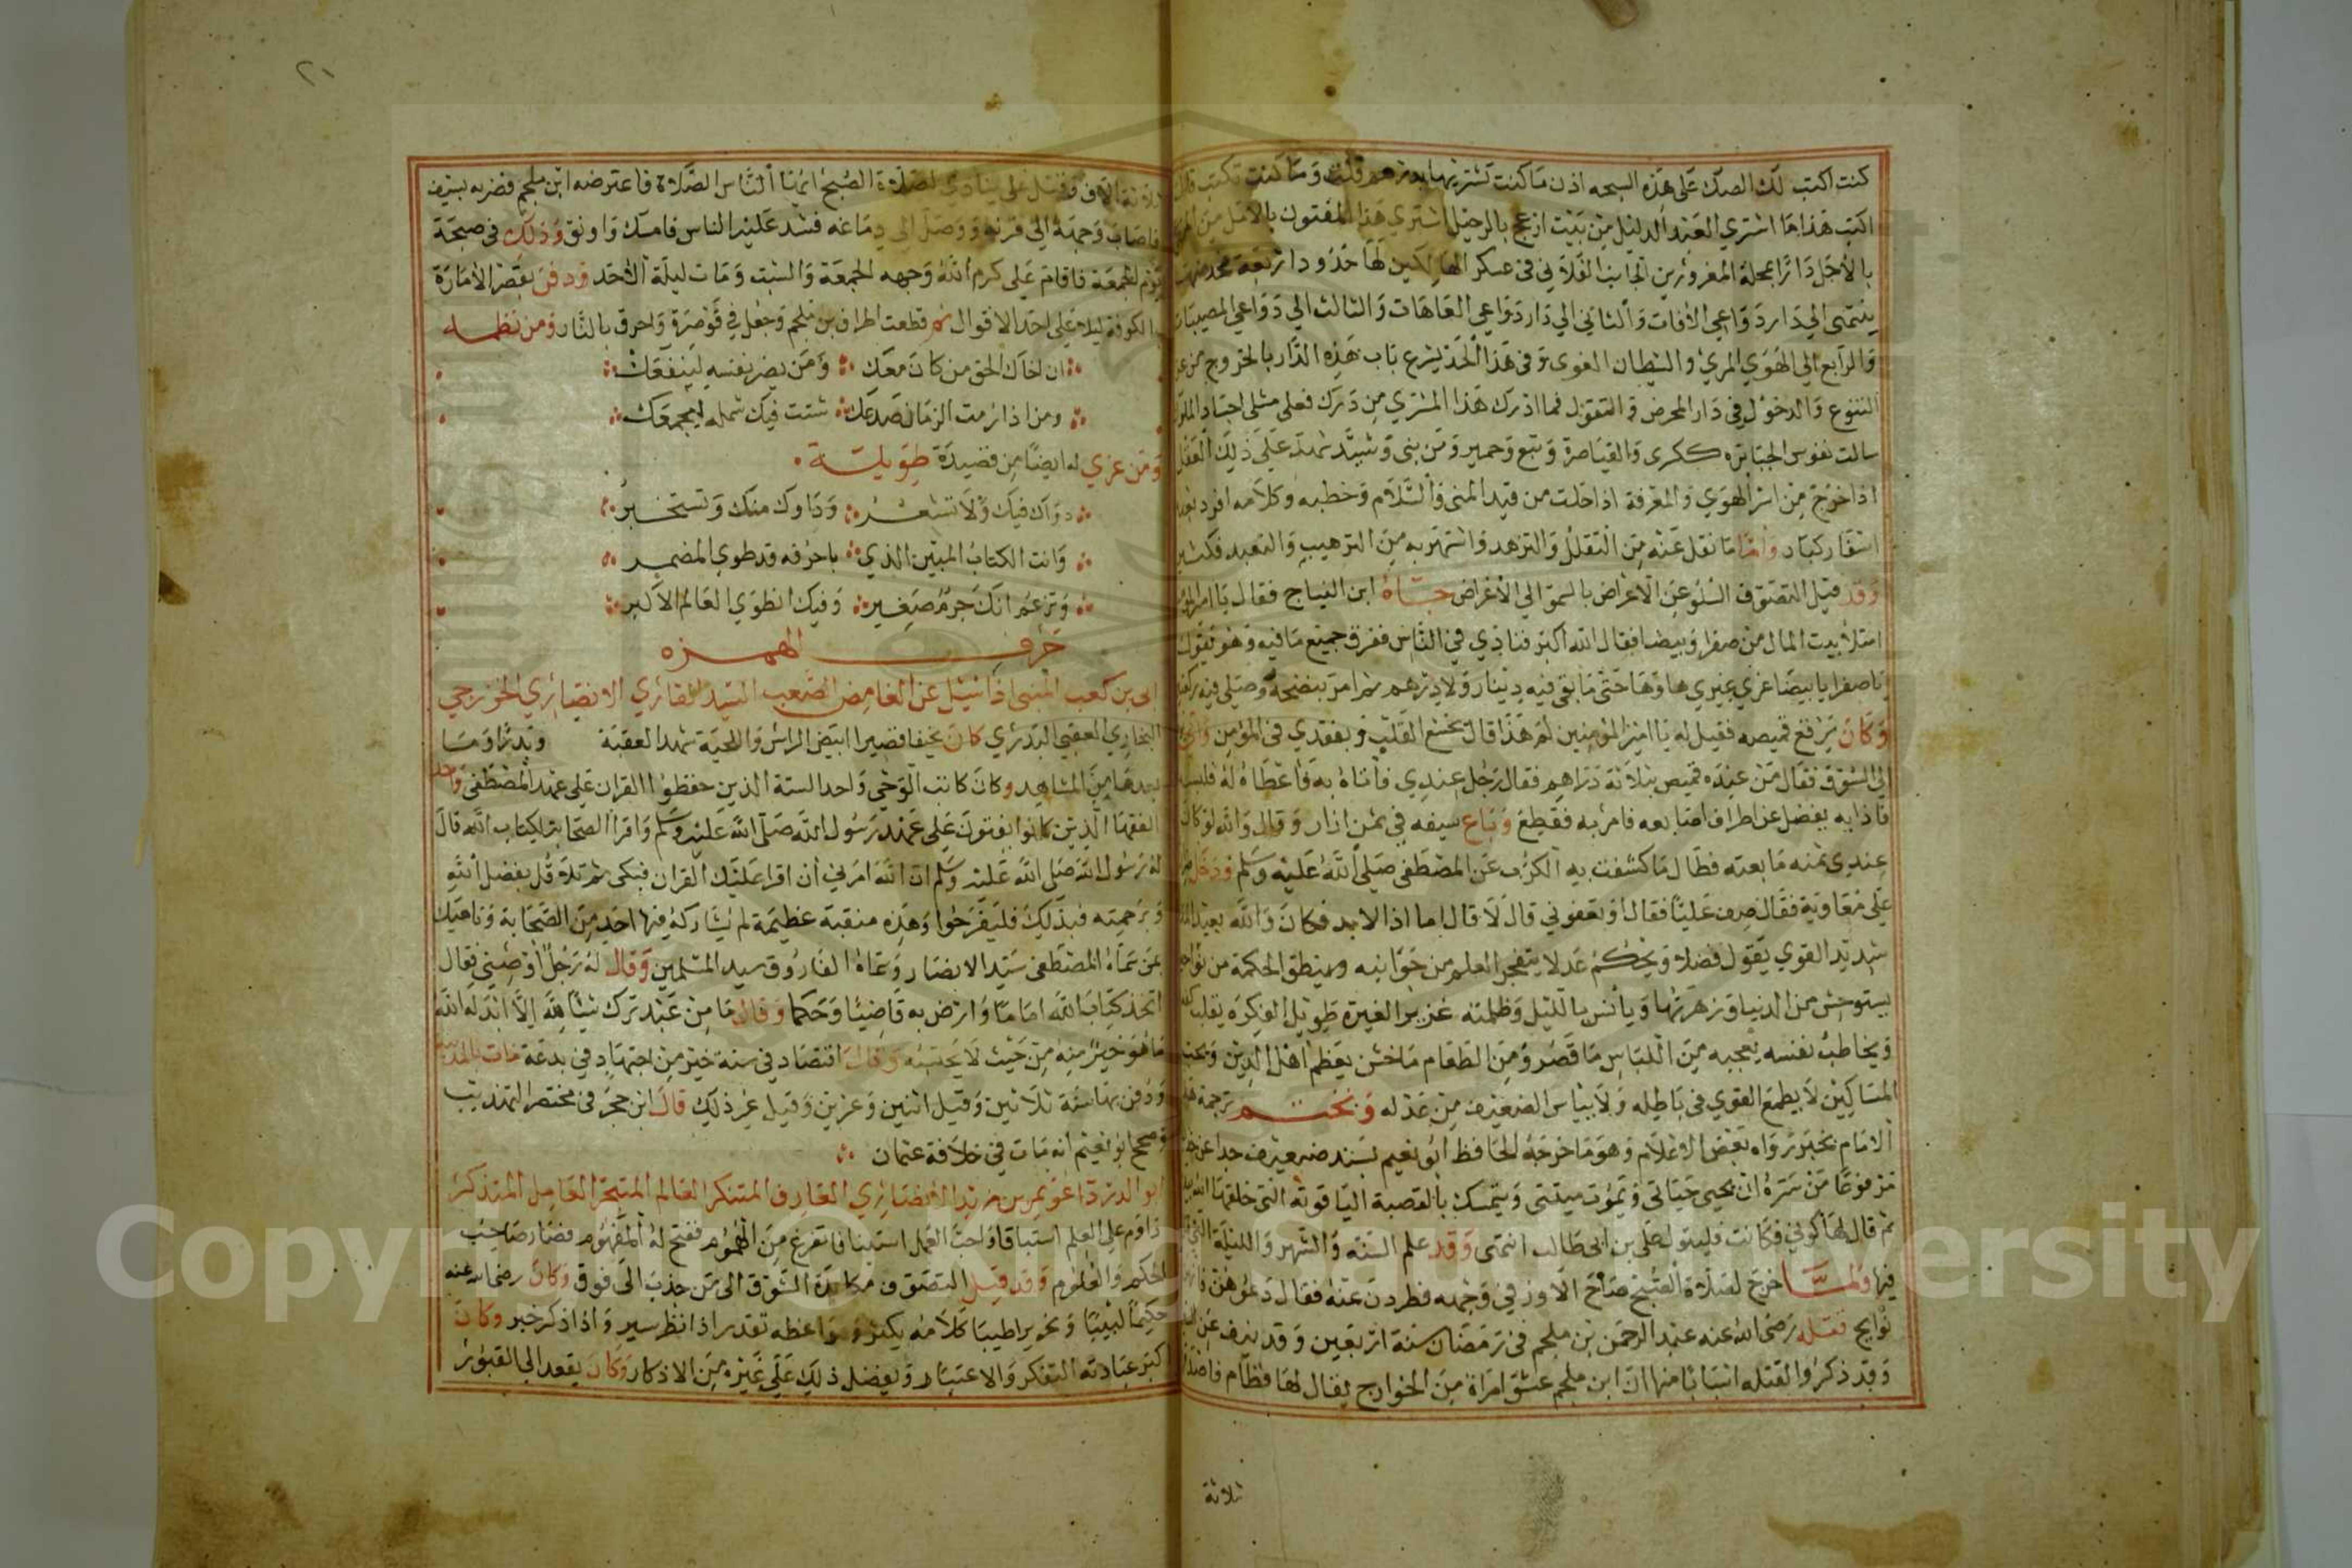 كنت اكتب لك الصك على هذه النسخه اذن ما كنت تشتريها بدرهم قلت وما كنت تكتب قال
اكتب هذا ما اشتري العبد الدليل من بيت ازعج بالرحيل اشتري هذا المفتون بالامل من
بالاجل دارا بمحلة المغرورين الجانب الفلاني في عسكر الهالكين لها حدود اربعة
ينتمى الي دار دواعي الافات والثاني الي دار دواعي العاهات والثالث الي دواعي المصيبات
والرابع الي الهوي المري والشيطان الغوى وفي هذا الحد يشرع باب هذه الدار بالخروج من
والدخول في دار المحرض فما ادرك هذا المشتري من درك فعلى مبلي اجساد الملوك
سالت نفوس الجبابره ككرى والقياصرة وتبع وحمير ومن بنى وشيد شهد على ذلك العقل
اذا خرج من اسر الهوي والمعرفة اذا خلت من قيد المنى والسلام وخطبه وكلامه افرد بعد
اسفار كبار واما ما نقل عنه من التقلل والتزهد واشتهر به من الترهيب والتعبد فكثير
وقد قيل التصوف السلو عن الاعراض بالسمو الي الاغراض جاه ابن النباج فقال يا امير
امتلا بيت المال من صفرا وبيضا فقال الله اكبر فنادي في الناس ففرق جميع ما فيه وهو يقول
يا صفرا يا بيضا غري غيري ها وها حتى ما بقي فيه دينار ولا درهم ثم امر بنضحه وصلى فيه
وكان يرقع قميصه فقيل له يا امير المؤمنين لم هذا قال يخشع القلب ويقتدي في المؤمن
الي السوق فقال من عنده قميص بثلاثة دراهم فقال رجل عندي فاتاه به فاعطاه له فلبسه
فاذا به يفضل عن اطراف اصابعه فامر به فقطع وباع سيفه في ثمن ازار وقال والله لو كان
عندي ثمنه ما بعته فطال ما كشفت به الكرب عن المصطفى صلى الله عليه وسلم ودخل
على معاوية فقال صف عليا فقال او تعفوني قال لا قال اما اذا لا بد فكان والله بعيد
شديد القوي يقول فصلا ويحكم عدلا يتفجر العلم من جوانبه وينطق الحكمة من
يستوحش من الدنيا وزهرتها ويأنس بالليل وظلمته غزير العبرة طويل الفكره يقلب
ويخاطب نفسه يعجبه من اللباس ما قصر ومن الطعام ما خشن يعظم اهل الدين ويحب
المساكين لا يطمع القوي في باطله ولا يياس الضعيف من عدله ونختم ترجمة
الامام بخبر رواه بعض الاعلام وهو ما خرجه الحافظ ابو نعيم بسند ضعيف جدا عن
مرفوعا من سره ان يحيى حياتي ويموت ميتتى ويتمسك بالقصبة الياقوته التي خلقها الله
ثم قال لها كوني فكانت فليتول على بن ابي طالب انتهى وقد علم السنة والشهر والليلة التي
فيها ولما خرج لصلاة الصبح صاح الاوز في وجهه فطردن عنه فقال دعوهن
نوايح فقتله رضي الله عنه عبد الرحمن بن ملجم في رمضان سنة اربعين وقد نيف عن
وقد ذكروا لقتله اسبابا منها ان ابن ملجم عشق امراة من الخوارج يقال لها قطام فاصدقها
ثلاثة
٢١
ثلاثة الاف وقتل على ينادي لصلاة الصبح ايها الناس الصلاة فاعترضه ابن ملجم فضربه بسيف
فاصاب وجهه الي قرنه ووصل الى دماغه فشد عليه الناس فامسك واوثق وذلك في صبحة
يوم الجمعة فاقام على كرم الله وجهه الجمعة والسبت ومات ليلة الاحد ودفن بقصر الامارة
بالكوفة ليلا على احد الاقوال ثم قطعت اطراف بن ملجم وجعل في قوصرة واحرق بالنار ومن نظمه
ان اخاك الحق من كان معك ومن يضر نفسه لينفعك
ومن اذا ريب الزمان صدعك شتت فيك شمله ليجمعك
ومن عزي له ايضا من قصيدة طويلة
دواك فيك ولا تشعر وداوك منك وتستخبر
وانت الكتاب المبين الذي باحرفه قد طوي المضمر
وتزعم انك جرم صغير وفيك انطوي العالم الاكبر
حرف الهمزه
ابي بن كعب المنبي اذا سئل عن الغامض الصعب السيد القاري الانصاري الخزرجي
النجاري العقبي البدري كان نحيفا قصيرا ابيض الراس واللحية شهد العقبة وبدرا وما
بعدها من المشاهد وكان كاتب الوحي واحد الستة الذين حفظوا القران على عهد المصطفى واحد
الفقها الذين كانوا يفتون على عهد رسول الله صلى الله عليه وسلم واقرا الصحابة لكتاب الله قال
له رسول الله صلى الله عليه وسلم ان الله امرني ان اقرا عليك القران فبكى ثم تلا قل بفضل الله
وبرحمته فبذلك فليفرحوا وهذه منقبة عظيمة لم يشاركه فيها احد من الصحابة وناهيك
بمن سماه المصطفى سيد الانصار وسماه الفاروق سيد المسلمين وقال له رجل اوصني فقال
اتخذ كتاب الله اماما وارض به قاضيا وحكما وقال ما من عبد ترك شيئا لله الا ابدله الله
ما هو خير منه من حيث لا يحتسبه وقال اقتصاد في سنة خير من اجتهاد في بدعة مات بالمدينة
ودفن بها سنة ثلاثين وقيل اثنين وعشرين وقيل غير ذلك قال ابن حجر في مختصر التهذيب
وصحح ابو نعيم انه مات في خلافة عثمان
ابو الدردا عويمر بن زيد الانصاري العارف المتفكر العالم المتبحر العامل المتذكر
داوم على العلم استباقا واحب العمل استينا فا تفرغ من الهموم ففتح له المفهوم فصار صاحب
الحكم والعلوم وقد قيل التصوف مكابدة الشوق الى من جذب الى فوق وكان رضي الله عنه
حكيما لبيبا ونحريرا طبيبا كلامه يكثر ومواعظه تغدر اذا نظر سير واذا ذكر خبر وكان
اكبر عبادته التفكر والاعتبار ويفضل ذلك على غيره من الاذكار وكان يقعد الي القبور
Copyright © King Saud University